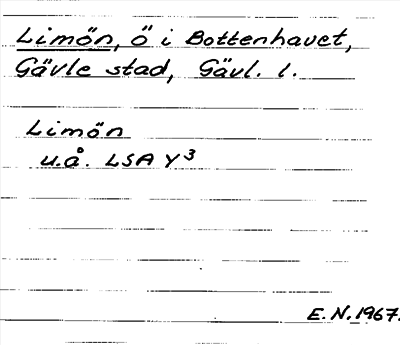 Limön, ö i Bottenhavet,
Gävle stad, Gävl. l.
Limön
u.å. LSA Y3
E.N. 1967.